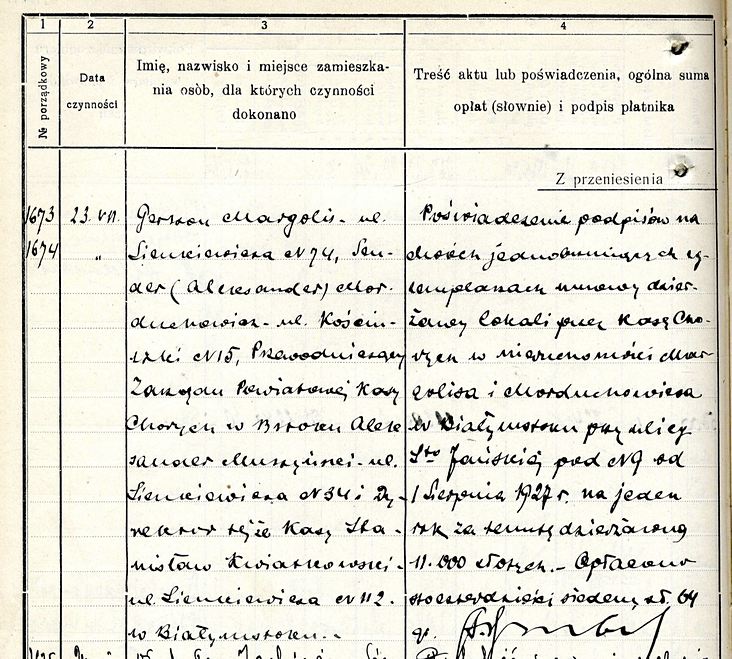 1 2 3 4
№ porządkowy
Data czynności
Imię, nazwisko i miejsce zamieszka-
nia osòb, dla których czynności
dokonano
Treść aktu lub poświadczenia, ogólna suma
opłat (słownie) i podpis płatnika
Z przeniesienia
1673
1674
23. VII.
"
Gerszon Margolis - ul.
Sienkiewicza № 74, Sen-
der (Aleksander) Mor-
duchowicz - ul. Kościu-
szki № 15, Przewodniczący
Zarządu Powiatowej Kasy
Chorych w Białymstoku Alek-
sander Muszyński - ul.
Sienkiewicza № 34 i Dy-
rektor tejże Kasy Sta-
nisław Kwiatkowski -
ul. Sienkiewicza № 112 -
w Białymstoku. -
Poświadczenie podpisów na
dwóch jednobrzmiących eg-
zemplarzach umowy dzier-
żawy lokali przez Kasę Cho-
rych w nieruchomości Mar-
golisa i Morduchowicza
w Białymstoku przy ulicy
Sto Jańskiej pod № 9 od
1 Sierpnia 1927 r. na jeden
rok za tenutę dzierżawną
11.000 złotych. - Opłacono
stoczterdzieści siedem zł. 64
gr.